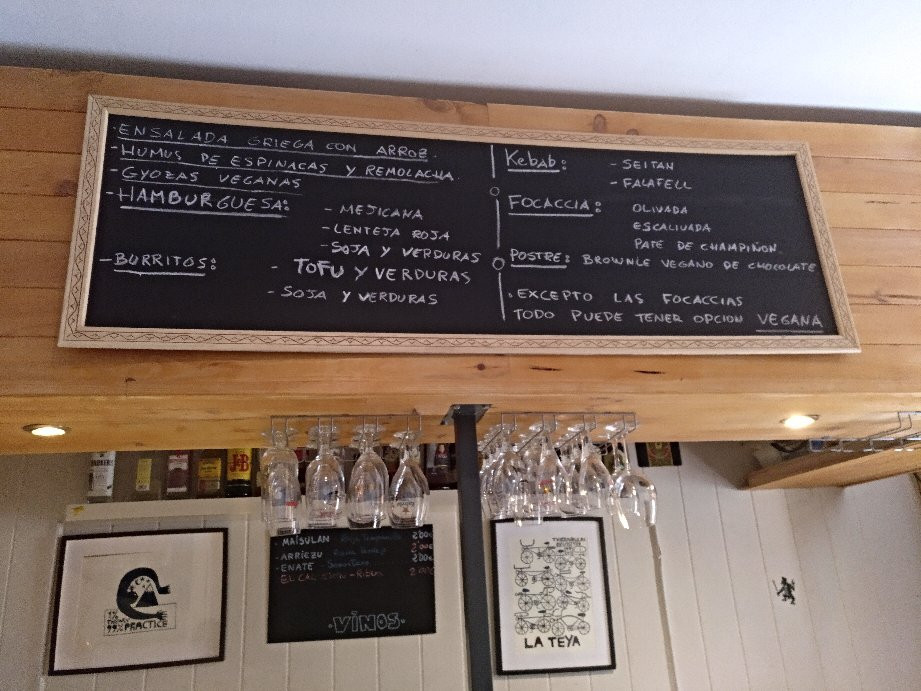 ·ENSALADA GRIEGA CON ARROZ.
-HUMUS DE ESPINACAS Y REMOLACHA
-GYOZAS VEGANAS
-HAMBURGUESA:
- MEJICANA
- LENTEJA ROJA
- SOJA Y VERDURAS
-BURRITOS:
- TOFU Y VERDURAS
- SOJA Y VERDURAS
Kebab:
- SEITAN
- FALAFELL
FOCACCIA:
OLIVADA
ESCALIVADA
PATE DE CHAMPIÑON
POSTRE: BROWNIE VEGANO DE CHOCOLATE
·EXCEPTO LAS FOCACCIAS
TODO PUEDE TENER OPCION VEGANA
J&B
- MAISULAN
- ARRIEZU
- ENATE
·VINOS·
1%
THEORY
99% PRACTICE
LA TEYA